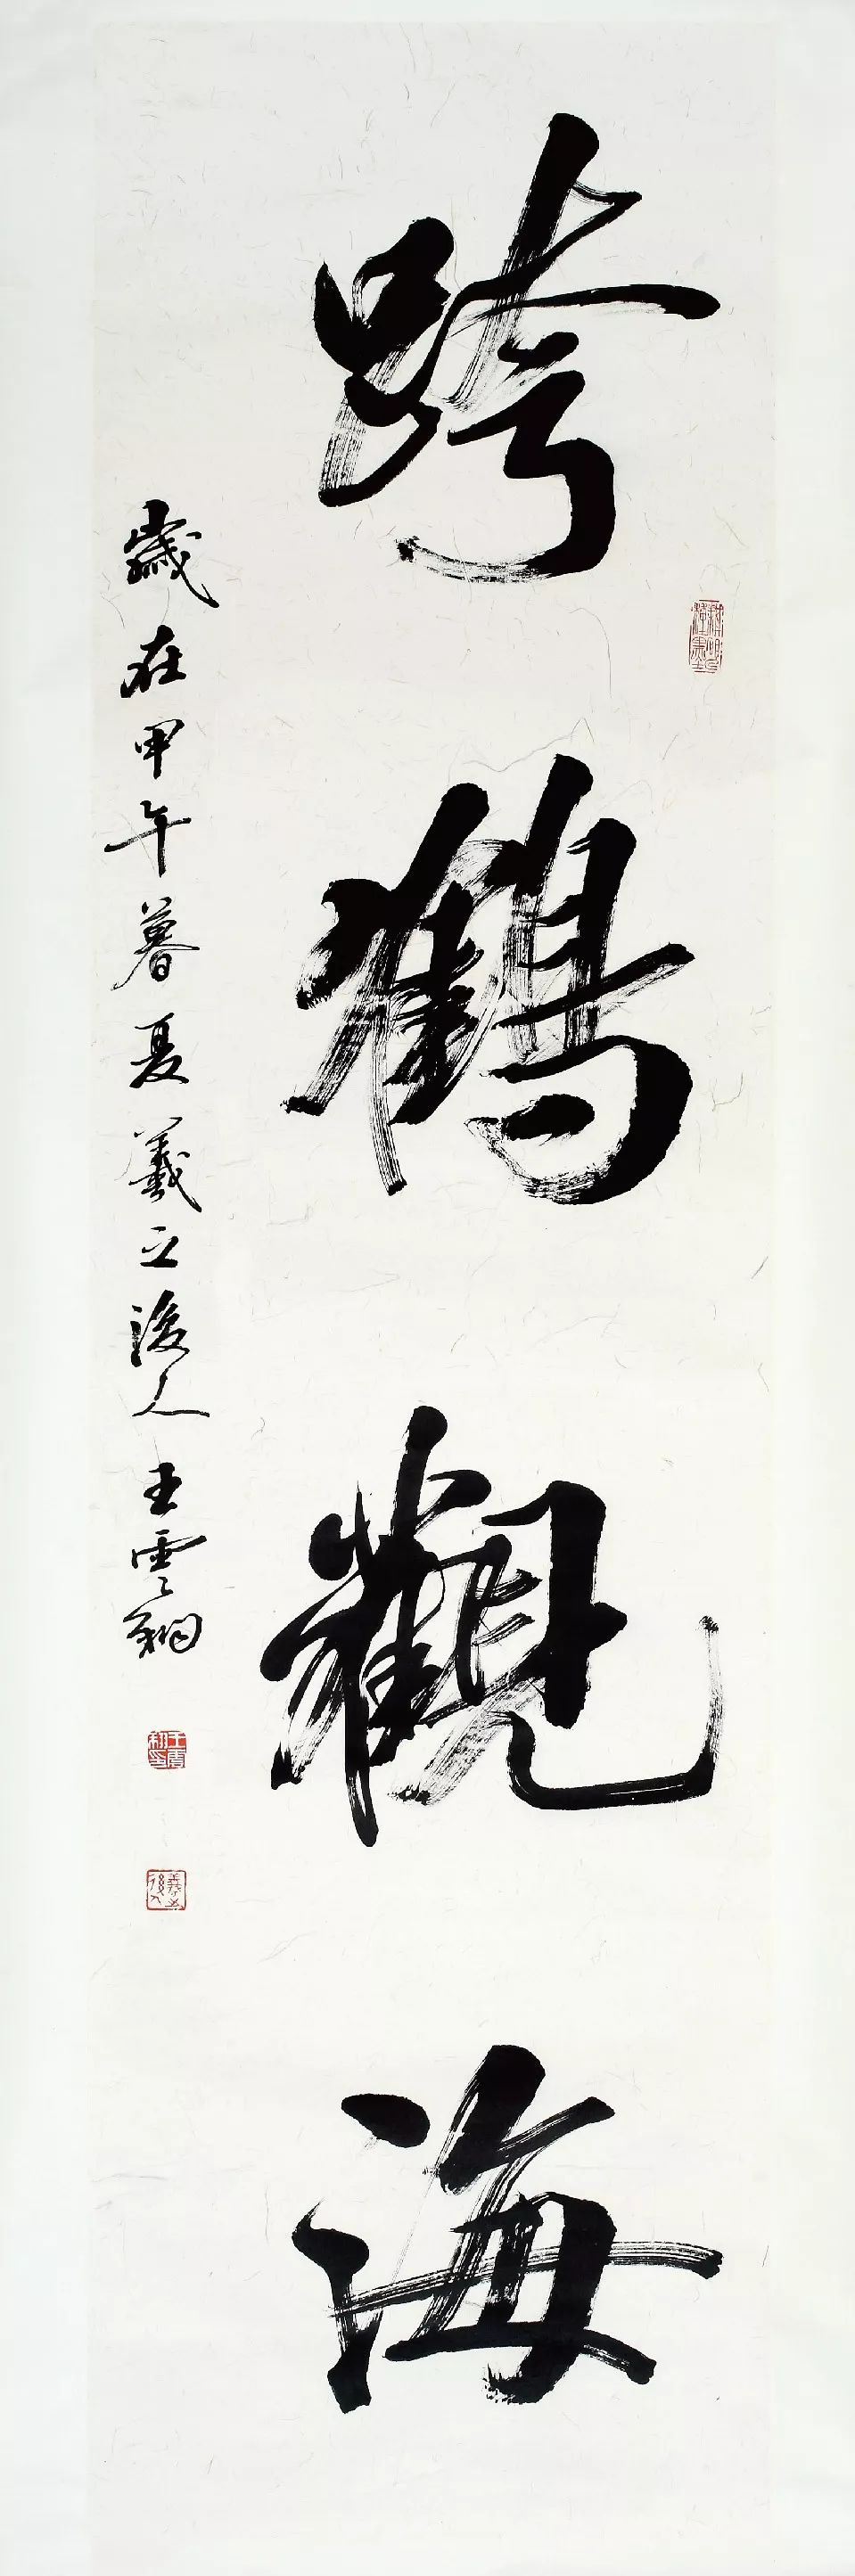 跨鶴觀海
歲在甲午暮夏羲之後人王雲翔
王雲翔印
羲之後人